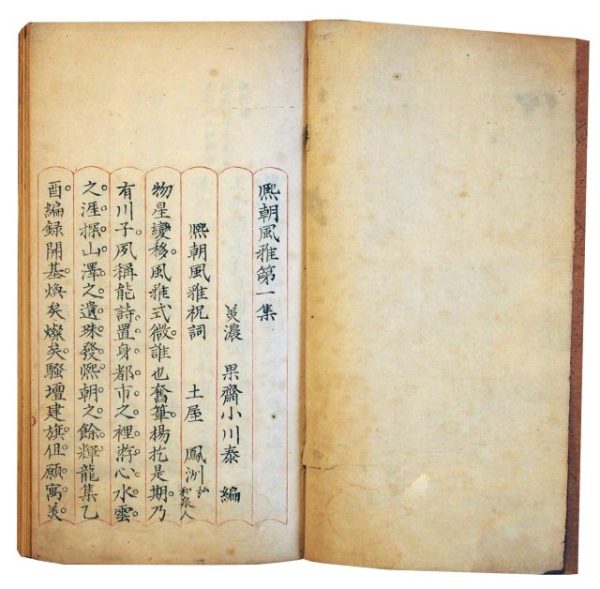 熈朝風雅第一集
美濃 果齋小川泰 編
熈朝風雅祝詞 土屋 鳳洲 弘 和泉人
物星變移。風雅式微。誰也奮筆。揚扢是期。乃
有川子。夙稱能詩。置身都市之裡。游心水雲
之涯。探山澤之遺珠。發熈朝之餘輝。龍集乙
酉。編録開基。煥矣燦矣。騷壇建旗。但願寓美